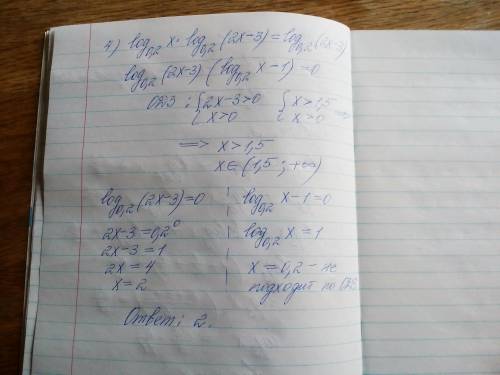 4) log₀,₂ x · log₀,₂ (2x-3) = log₀,₂ (2x-3)
log₀,₂ (2x-3) (log₀,₂ x - 1) = 0
ОДЗ: { 2x-3>0 { x>1,5 =>
{ x>0 { x>0
=> x>1,5
x∈(1,5; +∞)
log₀,₂ (2x-3) = 0
2x-3 = 0,2⁰
2x-3 = 1
2x = 4
x = 2
log₀,₂ x - 1 = 0
log₀,₂ x = 1
x = 0,2 - не
подходит по ОДЗ
Ответ: 2.